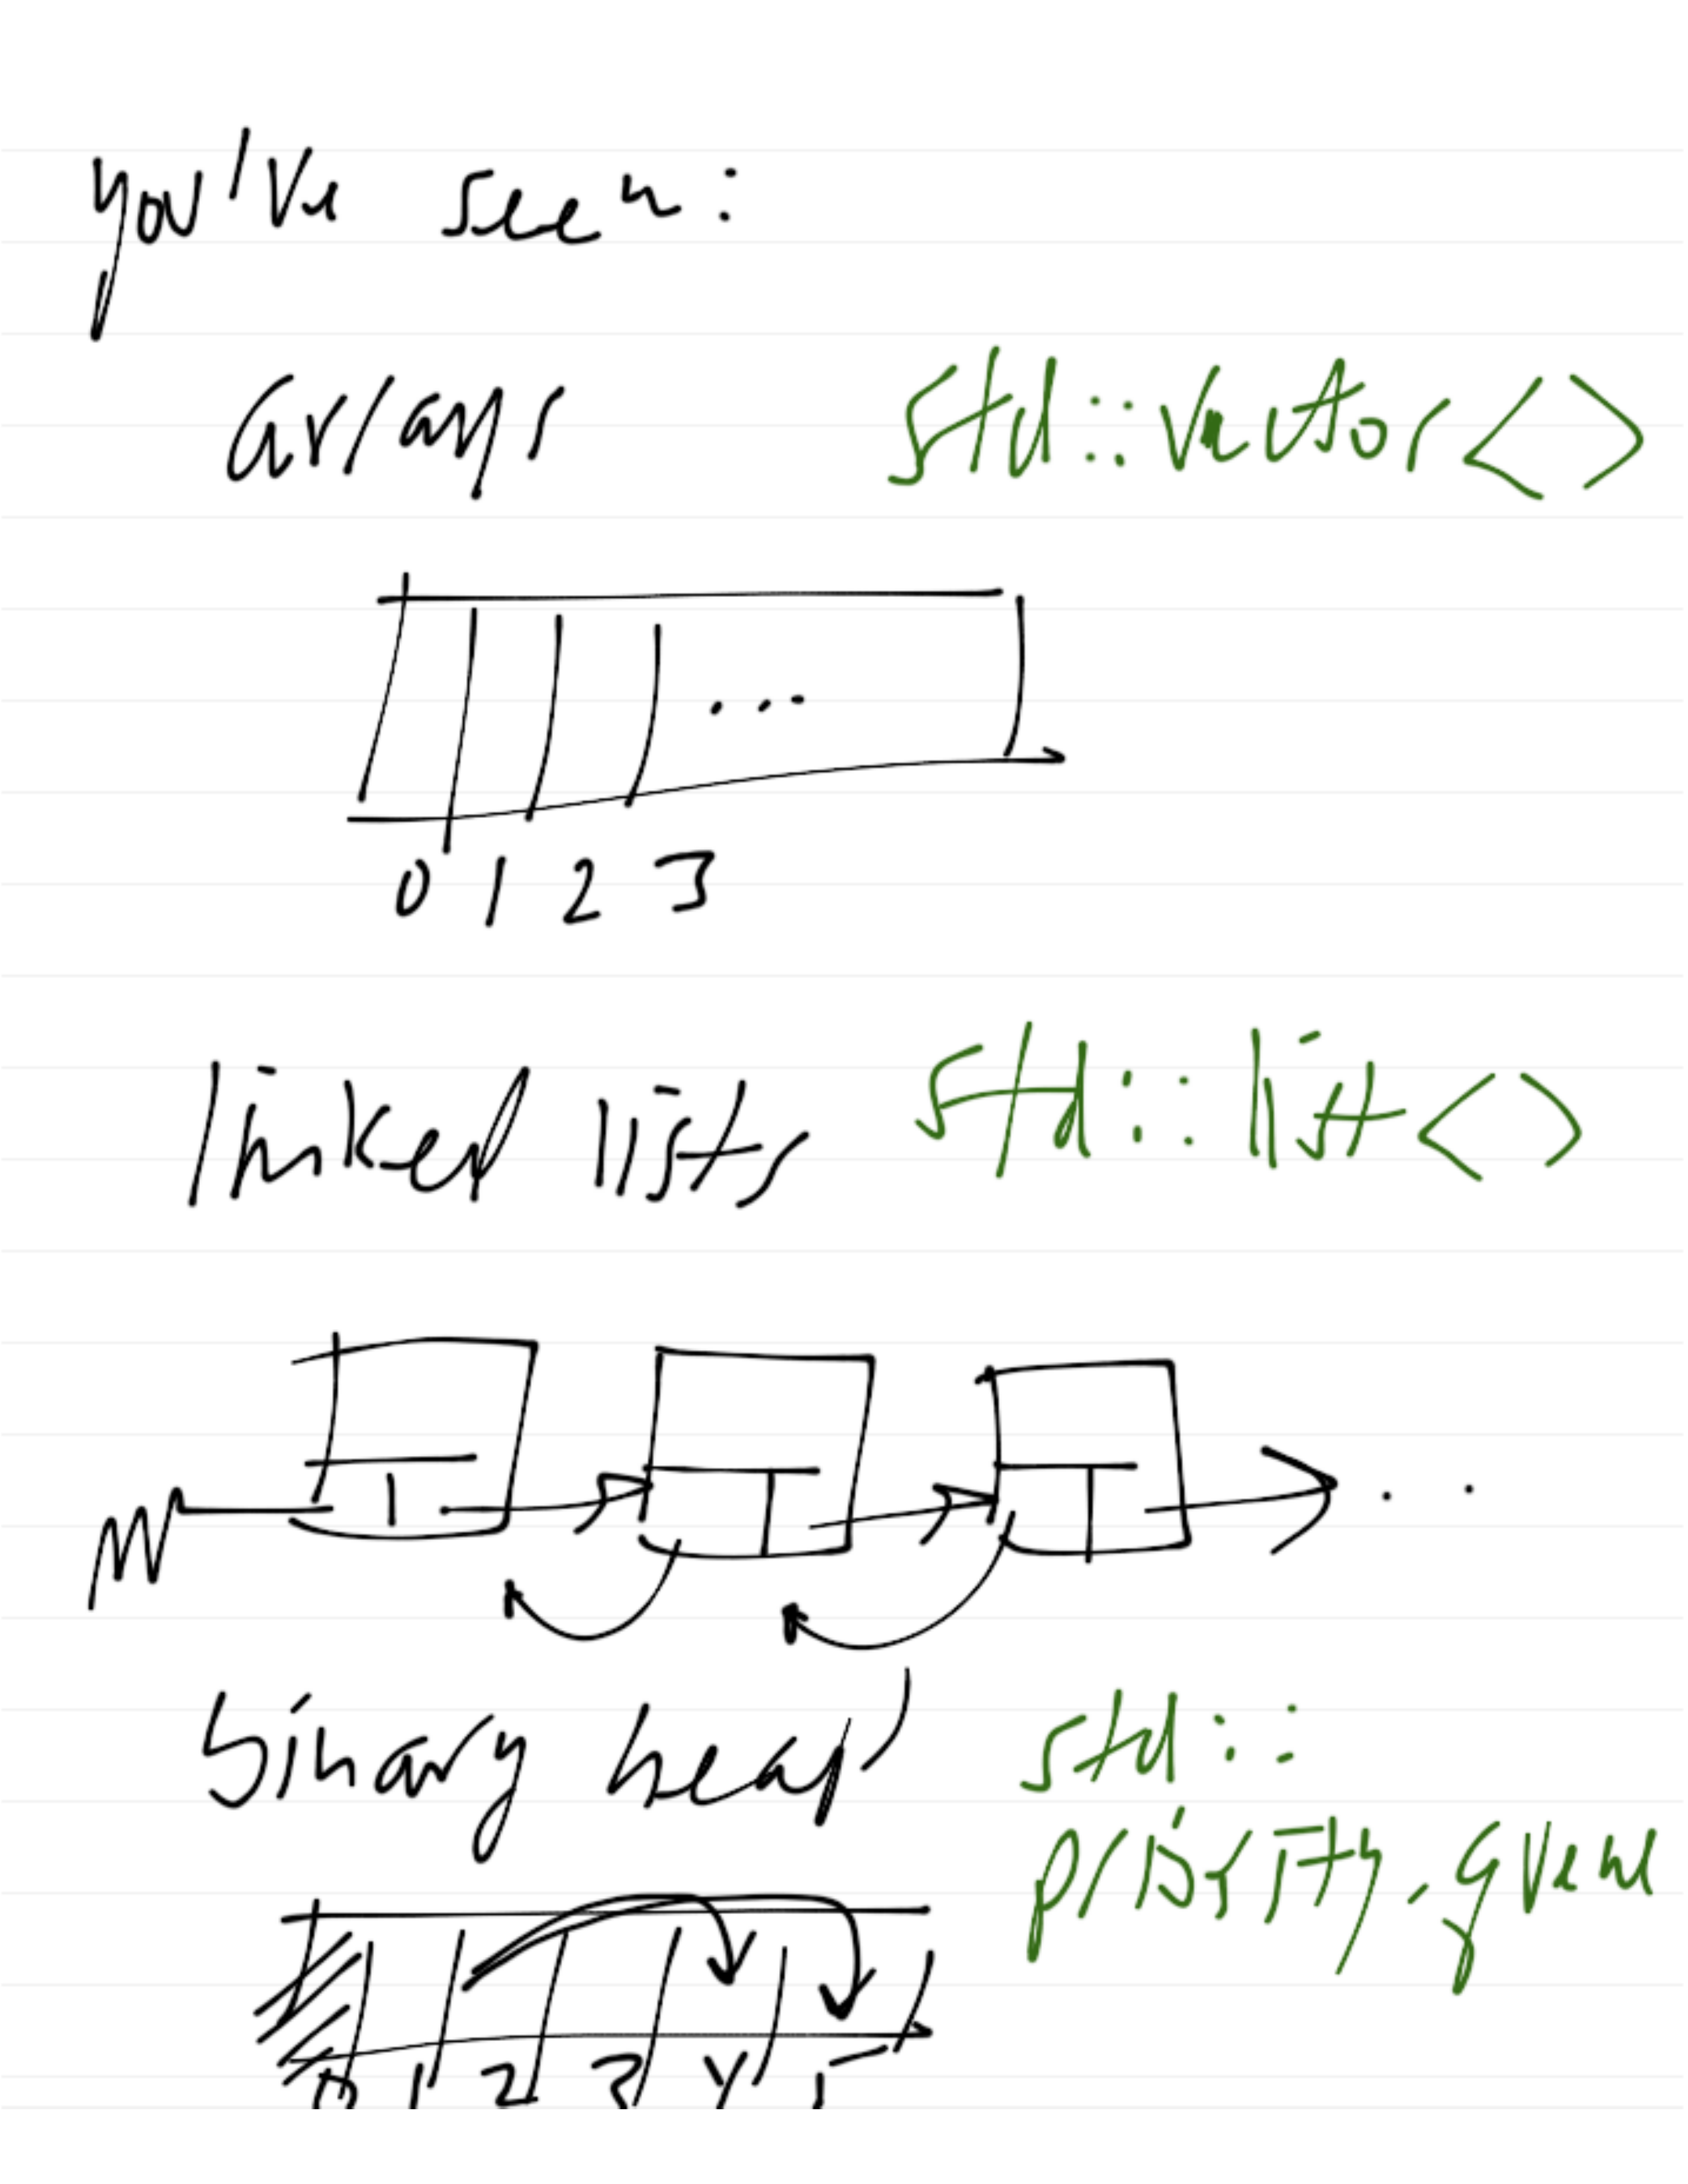 you've seen:
arrays std::vector<>
0 1 2 3
linked lists std::list<>
binary heap std::
priority_queue
0 1 2 3 4 5